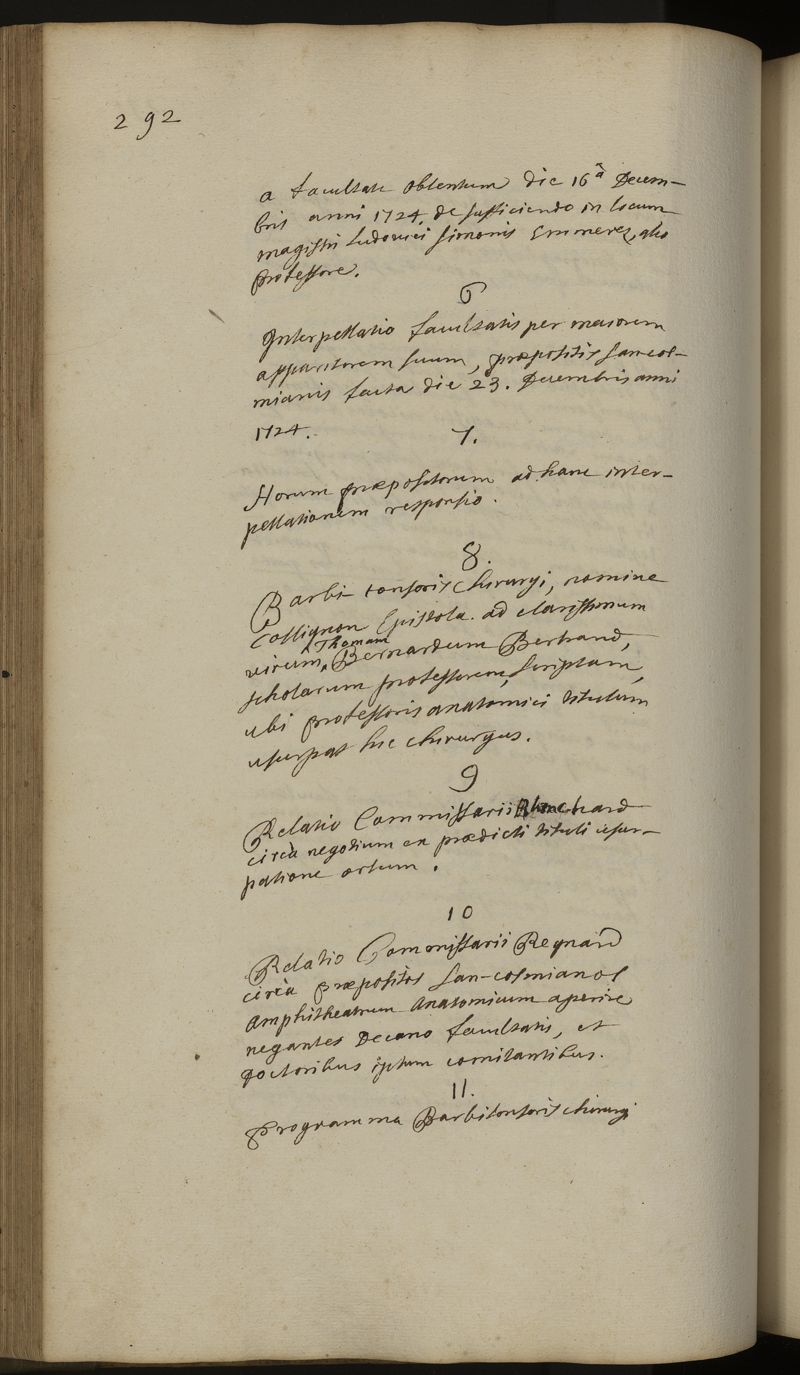 292
a facultate obtentum die 16ª Decem-
bris anni 1724. de sufficiendo in locum
magistri Ludovici Simonis Emmerez, alio
professore.
6
Interpellatio facultatis per maiorem
apparitorem suum, præpositis san-cos-
mianis facta die 23. Decembris anni
1724.
7.
Horum præpositorum ad hanc inter-
pellationem responsio.
8.
Barbi-tonsoris chirurgi, nomine
Collignon Epistola ad clarissimum
virum, Thomam Bernardum Bertrand,
scholarum professorem, scriptam,
ubi professoris anatomici titulum
usurpat hic chirurgus.
9
Relatio Commissarii Blanchard
circà negotium ex prædicti tituli usur-
patione ortum.
10
Relatio Commissarii Regnard
circà præpositos san-cosmianos
amphitheatrum anatomicum aperire
negantes Decano facultatis, et
Doctoribus ipsum comitantibus.
11.
Programma Barbitonsoris chirurgi